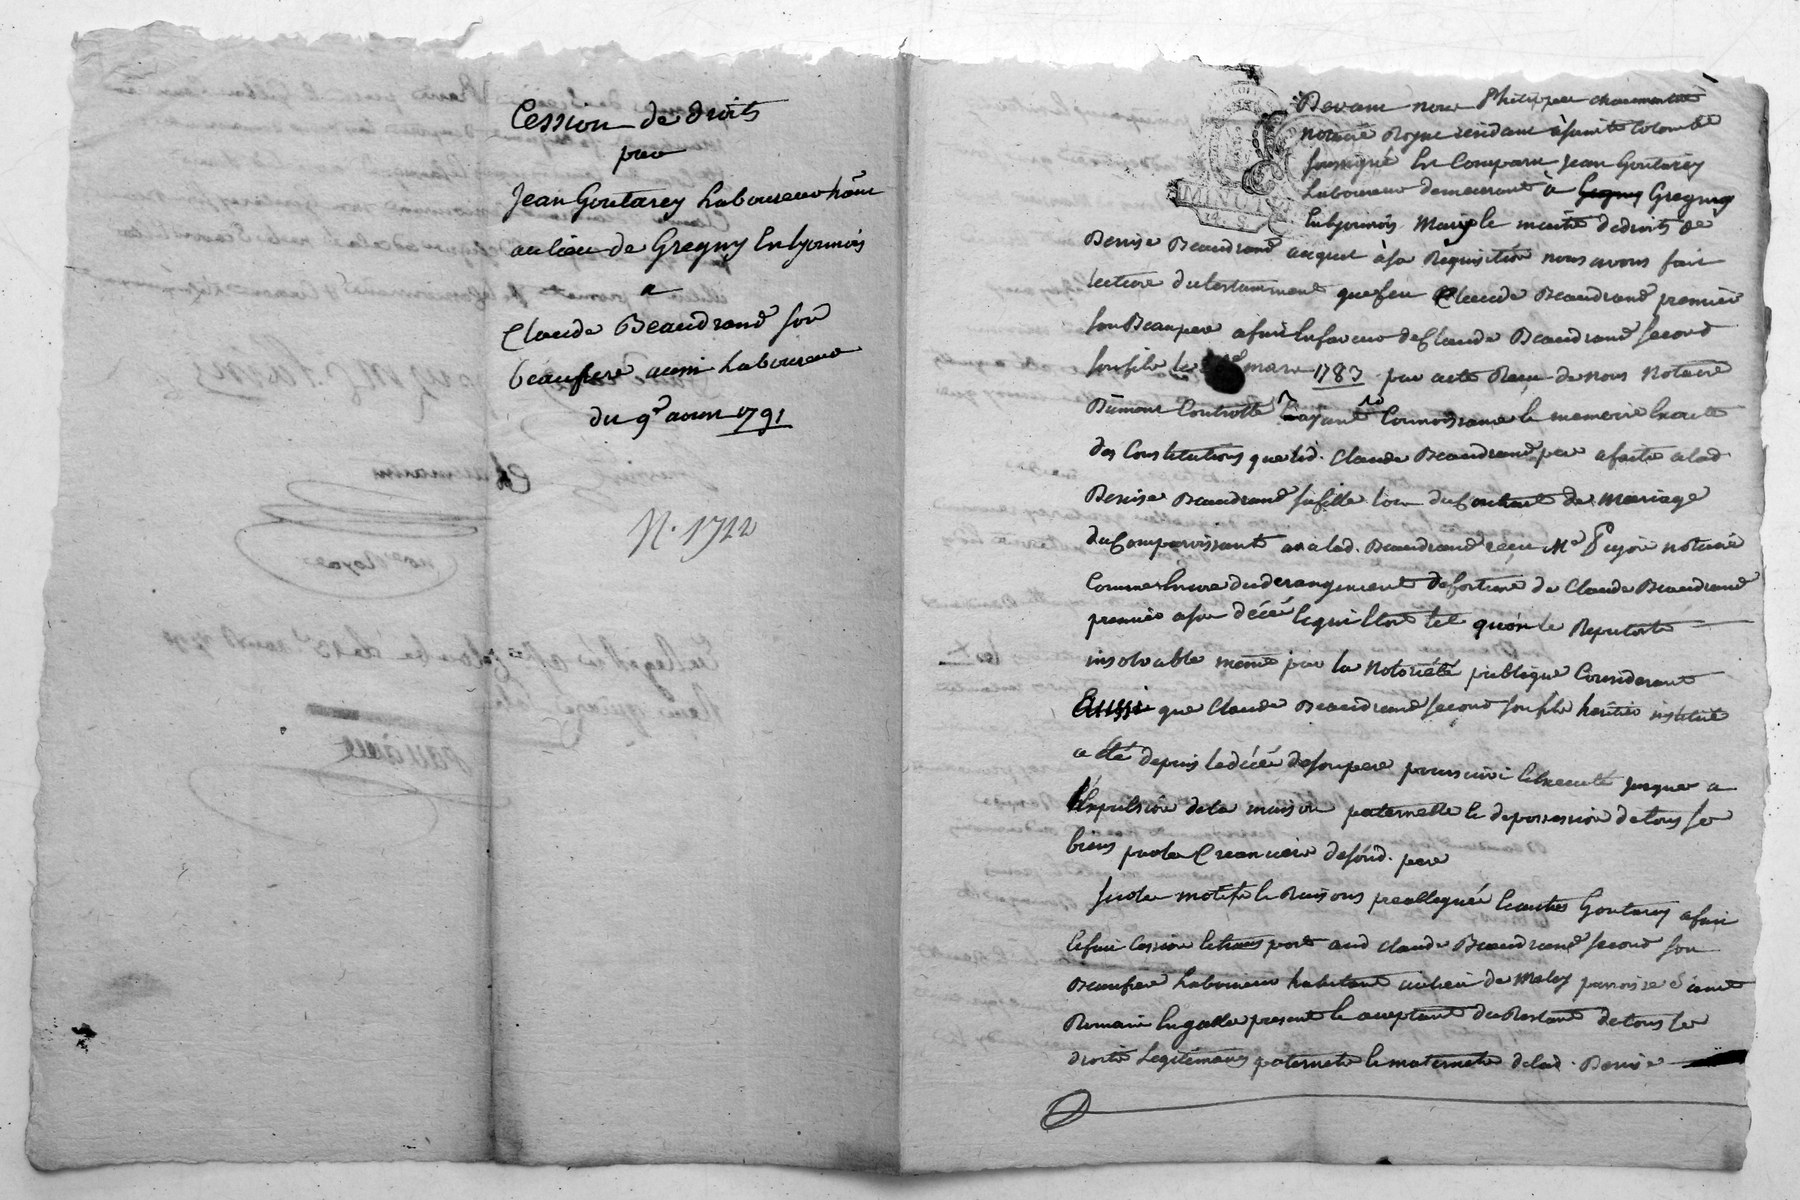 Cession de droits
par
Jean Goutarey Laboureur hãnt
au lieu de Gregny en lyonnois
a
Claude Beaudrand son
beaufrere aussi Laboureur
du 9e aoust 1791
N. 1722
MINUTE
14. S.
Devant nous Philippe Chaumartin
notaire Royal residant à sainte Colombe
soussigné Est Comparu Jean Goutarey
Laboureur demeurant à Gregny
en lyonnois Mary le maitre de droits de
Denise Beaudrand auquel à sa Requisition nous avons fait
lecture du testamment que feu Claude Beaudrand premier
son Beaupere a fait en faveur de Claude Beaudrand second
son fils le mars 1783 par acte Reçu de nous Notaire
Dûment Controllé ayant Connoissance le memoire Exacte
des Constitutions que led. Claude Beaudrand pere a faite a lad
Denise Beaudrand sa fille lors du Contrat de Mariage
du Comparoissant avec lad. Beaudrand reçu Me notaire
Comme Encore du derangement de fortune de Claude Beaudrand
premier a son décé lequel Etoit tel qu'on le Reputoit
insolvable même par la Notoriété publique Considerant
Aussi que Claude Beaudrand second son fils héritier institué
a été depuis le décé de son pere poursuivi Et Executé jusques a
l'Expulsion de la maison paternelle Et depossession de tous ses
biens par les Creanciers de sond. pere
sur les motifs Et Raisons preallegués Et autres Goutarey a fait
Et fait Cession Et transport aud Claude Beaudrand second son
Beaufrere Laboureur habitant au lieu de paroisse Saint
Romain En present Et acceptant du Restant de tous les
droits Legitimaires paternels Et maternels de lad. Denise